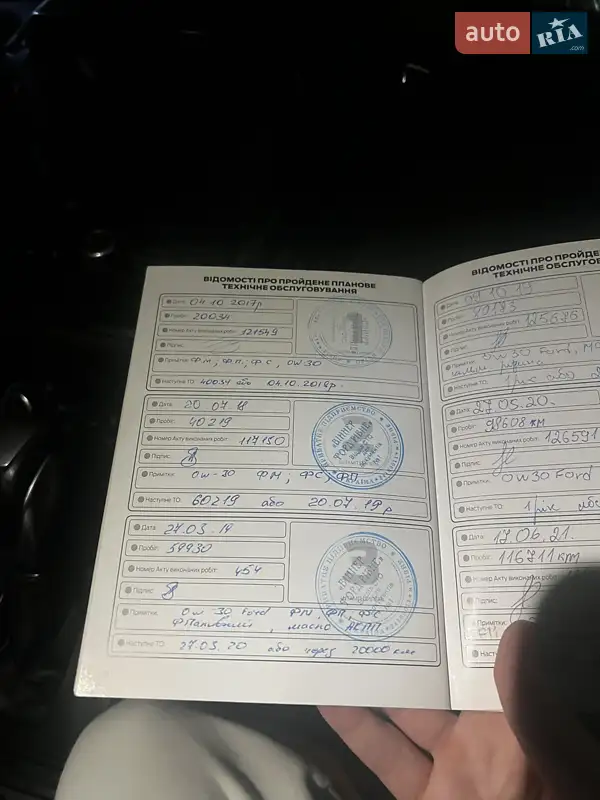 auto RIA .com
ВІДОМОСТІ ПРО ПРОЙДЕНЕ ПЛАНОВЕ
ТЕХНІЧНЕ ОБСЛУГОВУВАННЯ
Дата: 04.10 2017р
Пробіг: 20034
Номер Акту виконаних робіт: 121549
Підпис:
Примітки: ФМ, ФП, ФС, 0W30
Наступне ТО: 40034 або 04.10.2018р.
Дата: 20.07.18
Пробіг: 40219
Номер Акту виконаних робіт: 117150
Підпис:
Примітки: 0W-30 ФМ, ФС, ФП
Наступне ТО: 60219 або 20.07.19р
Дата: 27.03.19
Пробіг: 59930
Номер Акту виконаних робіт: 454
Підпис:
Примітки: 0W-30 Ford ФМ, ФП, ФС
масло АКПП
Наступне ТО: 27.03.20 або через 20000 км
ВІДОМОСТІ ПРО ПРОЙДЕ
ТЕХНІЧНЕ ОБСЛУГОВ
Дата:
Пробіг:
Номер Акту виконаних робіт: 125676
Підпис:
Примітки: 0W30 Ford,
Наступне ТО: 1 рік або
Дата: 27.05.20.
Пробіг: 98608 км
Номер Акту виконаних робіт: 126591
Підпис:
Примітки: 0W30 Ford
Наступне ТО: 1 рік або
Дата: 17.06.21.
Пробіг: 116711 км
Номер Акту виконаних роб
Підпис:
Примітки:
Наст